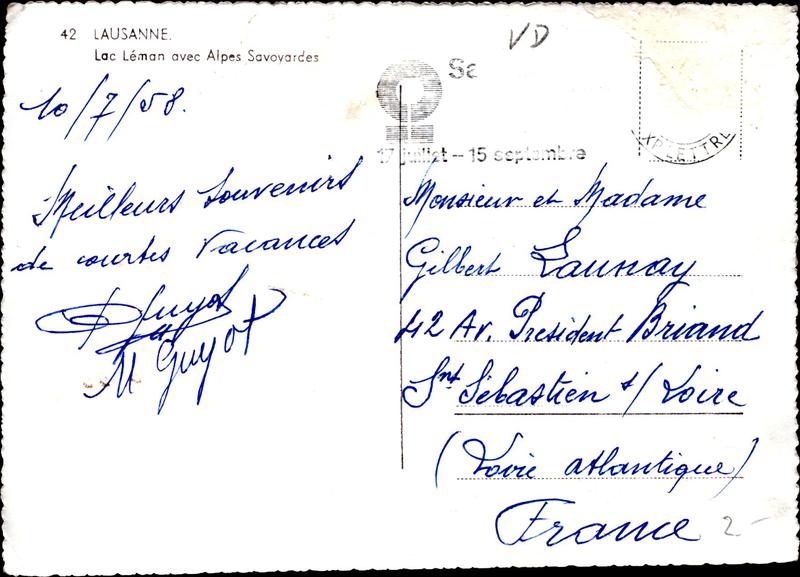 42 LAUSANNE.
Lac Léman avec Alpes Savoyardes
10/7/58.
Meilleurs souvenirs
de courtes vacances
Guyot
M Guyot
VD
17 juillet – 15 septembre
Monsieur et Madame
Gilbert Launay
42 Av. Président Briand
Snt Sébastien s/ Loire
(Loire atlantique)
France
2-